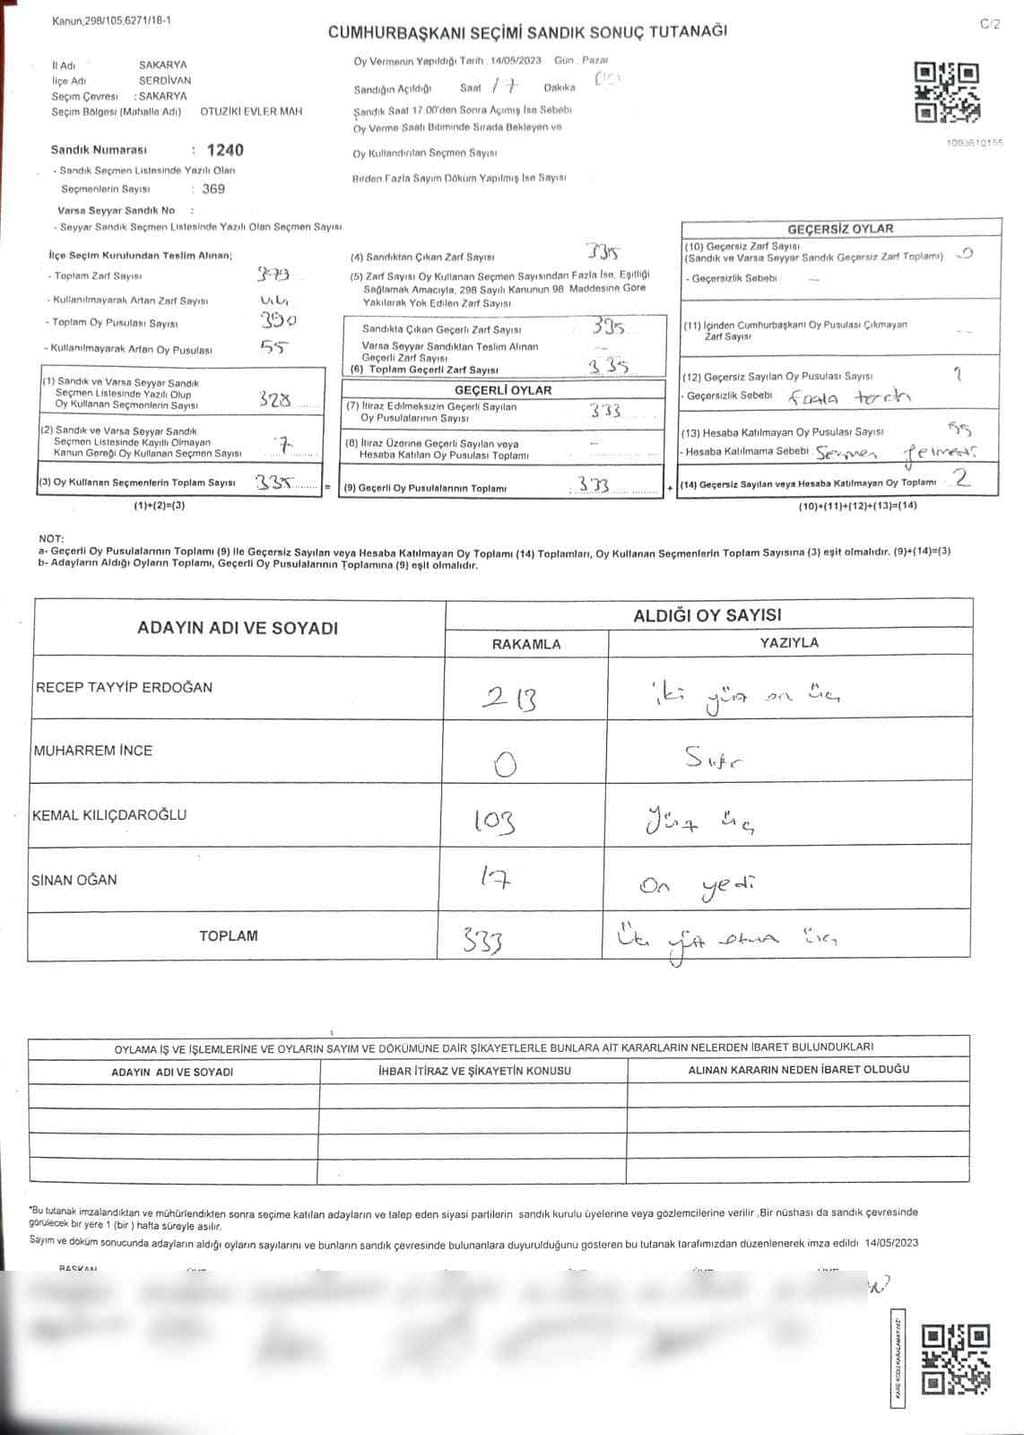 Kanun,298/105,6271/18-1
C/2
CUMHURBAŞKANI SEÇİMİ SANDIK SONUÇ TUTANAĞI
İl Adı SAKARYA
İlçe Adı SERDİVAN
Seçim Çevresi : SAKARYA
Seçim Bölgesi (Mahalle Adı) OTUZİKİ EVLER MAH
Oy Vermenin Yapıldığı Tarih 14/05/2023 Gün Pazar
Sandığın Açıldığı Saat 17 Dakika 00
Sandık Saat 17 00'den Sonra Açımış İse Sebebi
Oy Verme Saati Bitiminde Sırada Bekleyen ve
Oy Kullandırılan Seçmen Sayısı
Birden Fazla Sayım Döküm Yapılmış İse Sayısı
1093610155
Sandık Numarası : 1240
- Sandık Seçmen Listesinde Yazılı Olan
Seçmenlerin Sayısı : 369
Varsa Seyyar Sandık No :
- Seyyar Sandık Seçmen Listesinde Yazılı Olan Seçmen Sayısı
İlçe Seçim Kurulundan Teslim Alınan;
- Toplam Zarf Sayısı 379
- Kullanılmayarak Artan Zarf Sayısı 44
- Toplam Oy Pusulası Sayısı 390
- Kullanılmayarak Artan Oy Pusulası 55
(1) Sandık ve Varsa Seyyar Sandık
Seçmen Listesinde Yazılı Olup
Oy Kullanan Seçmenlerin Sayısı 328
(2) Sandık ve Varsa Seyyar Sandık
Seçmen Listesinde Kayıtlı Olmayan
Kanun Gereği Oy Kullanan Seçmen Sayısı 7
(3) Oy Kullanan Seçmenlerin Toplam Sayısı 335 =
(1)+(2)=(3)
(4) Sandıktan Çıkan Zarf Sayısı 335
(5) Zarf Sayısı Oy Kullanan Seçmen Sayısından Fazla İse, Eşitliği
Sağlamak Amacıyla, 298 Sayılı Kanunun 98 Maddesine Göre
Yakılarak Yok Edilen Zarf Sayısı
Sandıkta Çıkan Geçerli Zarf Sayısı 335
Varsa Seyyar Sandıktan Teslim Alınan
Geçerli Zarf Sayısı
(6) Toplam Geçerli Zarf Sayısı 335
GEÇERLİ OYLAR
(7) İtiraz Edilmeksizin Geçerli Sayılan
Oy Pusulalarının Sayısı 333
(8) İtiraz Üzerine Geçerli Sayılan veya
Hesaba Katılan Oy Pusulası Toplamı –
(9) Geçerli Oy Pusulalarının Toplamı : 333 +
GEÇERSİZ OYLAR
(10) Geçersiz Zarf Sayısı
(Sandık ve Varsa Seyyar Sandık Geçersiz Zarf Toplamı)
- Geçersizlik Sebebi —
(11) İçinden Cumhurbaşkanı Oy Pusulası Çıkmayan
Zarf Sayısı —
(12) Geçersiz Sayılan Oy Pusulası Sayısı
- Geçersizlik Sebebi fazla tercih
(13) Hesaba Katılmayan Oy Pusulası Sayısı 55
- Hesaba Katılmama Sebebi Seçmen gelmedi
(14) Geçersiz Sayılan veya Hesaba Katılmayan Oy Toplamı 2
(10)+(11)+(12)+(13)=(14)
NOT:
a- Geçerli Oy Pusulalarının Toplamı (9) ile Geçersiz Sayılan veya Hesaba Katılmayan Oy Toplamı (14) Toplamları, Oy Kullanan Seçmenlerin Toplam Sayısına (3) eşit olmalıdır. (9)+(14)=(3)
b- Adayların Aldığı Oyların Toplamı, Geçerli Oy Pusulalarının Toplamına (9) eşit olmalıdır.
ADAYIN ADI VE SOYADI
ALDIĞI OY SAYISI
RAKAMLA YAZIYLA
RECEP TAYYİP ERDOĞAN 213 iki yüz on üç
MUHARREM İNCE 0 Sıfır
KEMAL KILIÇDAROĞLU 103 Yüz üç
SİNAN OĞAN 17 On yedi
TOPLAM 333 Üç yüz otuz üç
OYLAMA İŞ VE İŞLEMLERİNE VE OYLARIN SAYIM VE DÖKÜMÜNE DAİR ŞİKAYETLERLE BUNLARA AİT KARARLARIN NELERDEN İBARET BULUNDUKLARI
ADAYIN ADI VE SOYADI İHBAR İTİRAZ VE ŞİKAYETİN KONUSU ALINAN KARARIN NEDEN İBARET OLDUĞU
*Bu tutanak imzalandıktan ve mühürlendikten sonra seçime katılan adayların ve talep eden siyasi partilerin sandık kurulu üyelerine veya gözlemcilerine verilir .Bir nüshası da sandık çevresinde
görülecek bir yere 1 (bir ) hafta süreyle asılır.
Sayım ve döküm sonucunda adayların aldığı oyların sayılarını ve bunların sandık çevresinde bulunanlara duyurulduğunu gösteren bu tutanak tarafımızdan düzenlenerek imza edildi 14/05/2023
BAŞKAN
KARE KODU KARALAMAYINIZ!